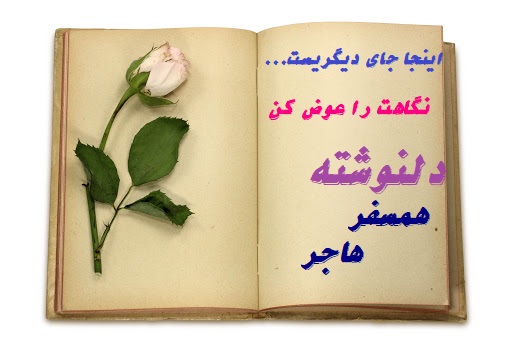 اینجا جای دیگریست...
نگاهت را عوض کن
دلنوشته
همسفر
هاجر